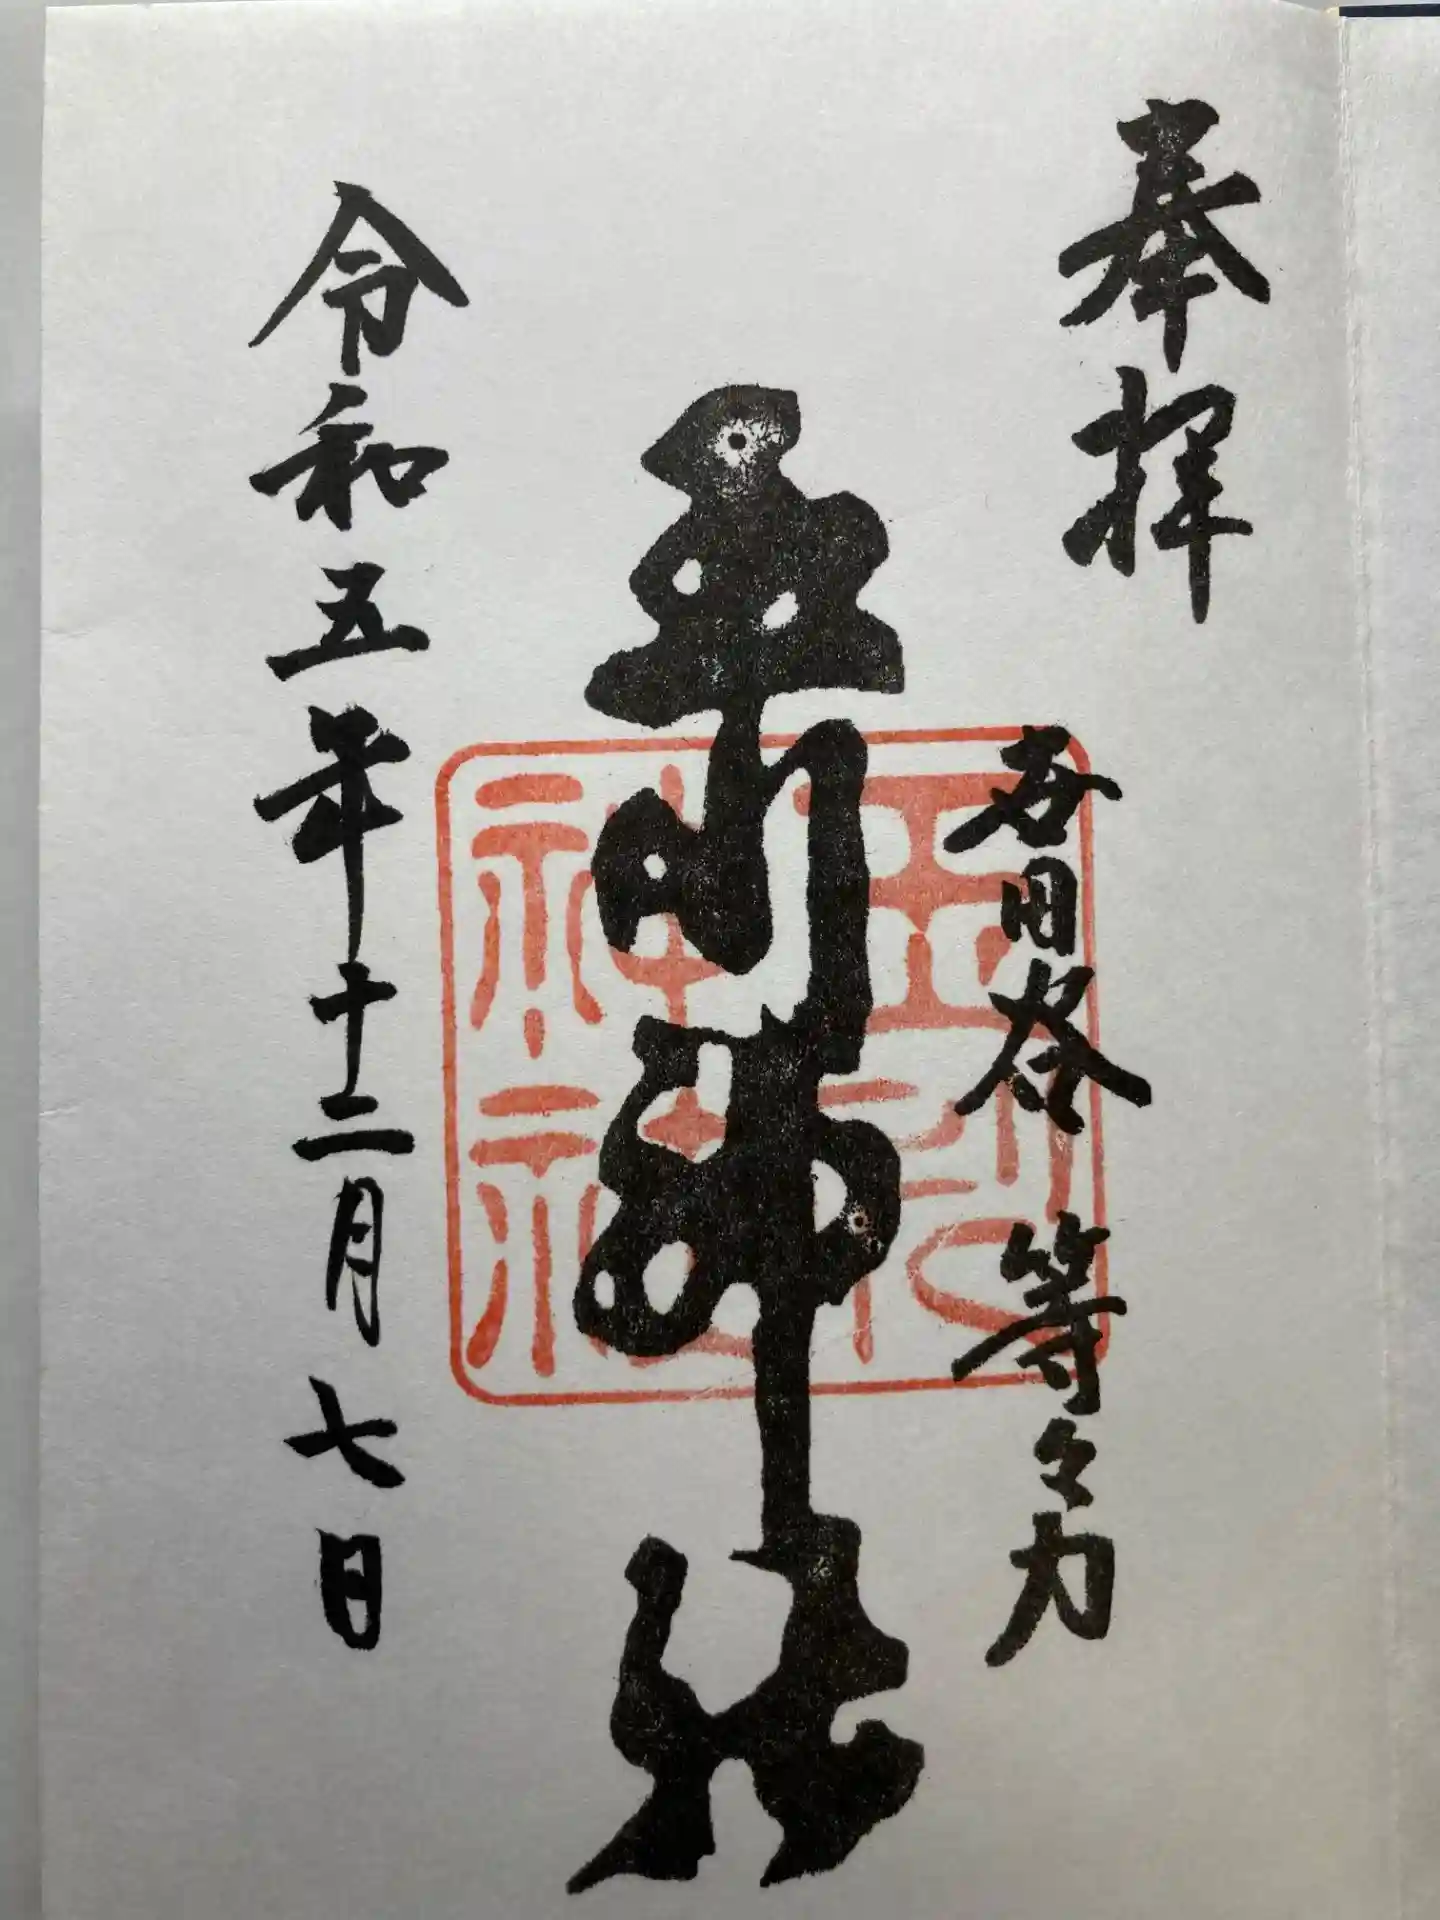 奉拝
世田谷 等々力
玉川神社
令和五年十二月七日